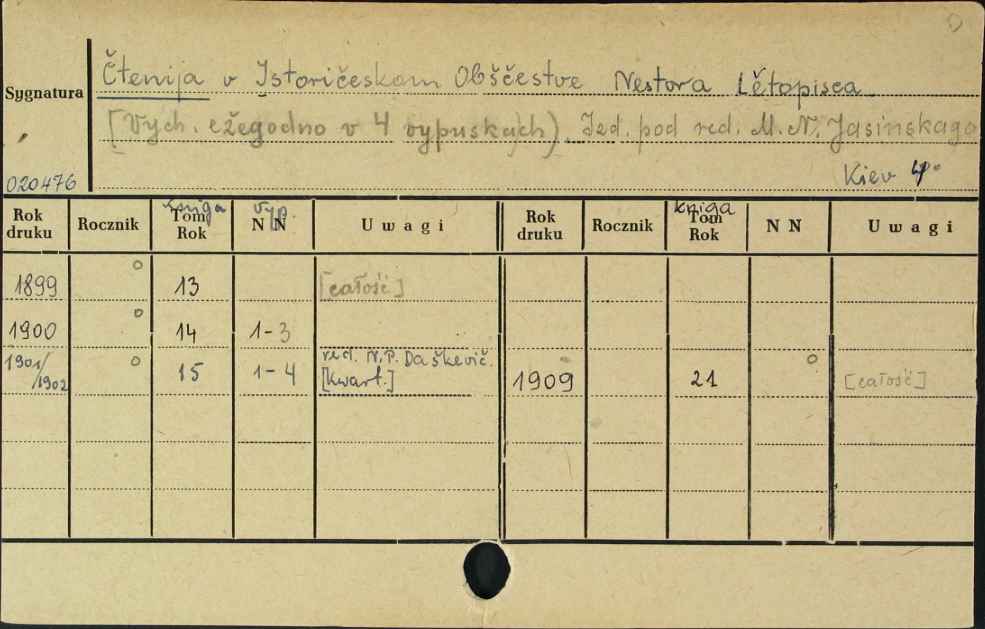 Čtenija v Istoričeskom Obščestve Nestora Lětopisca
Sygnatura
[Vych. ežegodno v 4 vypuskach). Izd. pod red. M. N. Jasinskago
Kiev 4°
020476
Rok druku Rocznik kniga Tom Rok vyp. N N Uwagi Rok druku Rocznik kniga Tom Rok N N Uwagi
1899 13 [całość]
1900 14 1-3
1901/1902 15 1-4 red. N. P. Daškevič. [kwart.] 1909 21 [całość]